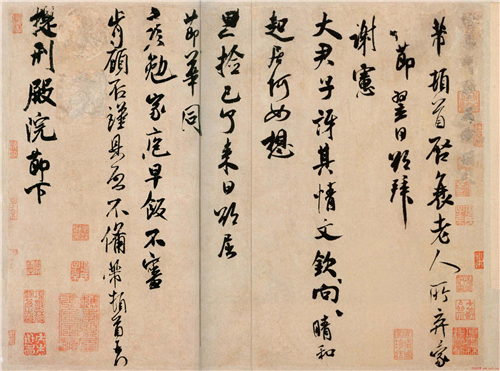 芾頓首啓衰老人所弃蒙
節翌日欲拜
謝憲
大君子訝其情文欽向〻晴和
起居何如想
捡已了來日欲屈
節華同
勉家庖早飯不審
肯顧否謹具咨不備芾頓首
提刑殿院節下